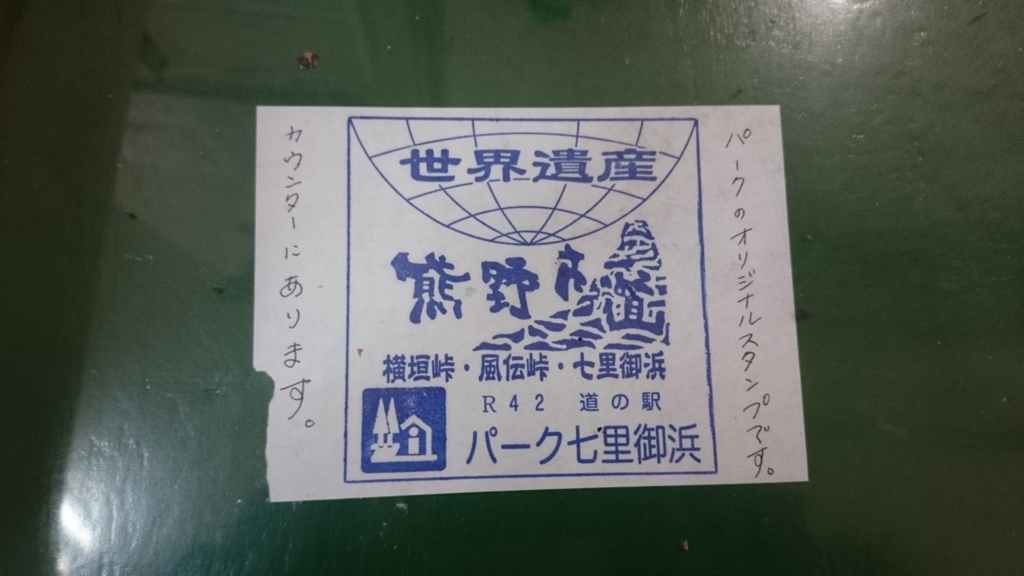 パークのオリジナルスタンプです。
世界遺産
熊野古道
横垣峠・風伝峠・七里御浜
R42 道の駅
パーク七里御浜
カウンターにあります。